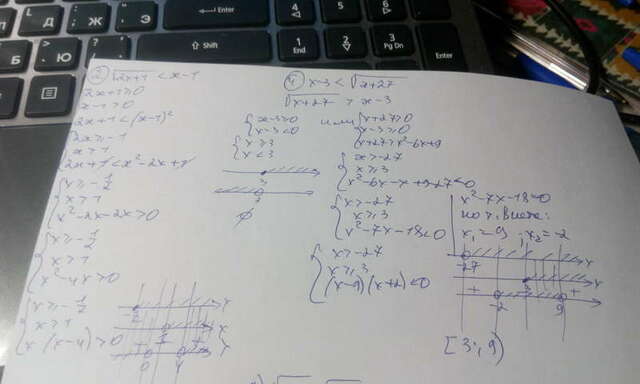 Enter
Shift
4
5
6
1
End
2
3
Pg Dn
Enter
Д
Ж
Э
Б
Ю
2x+1 < x-1
2x+1≥0
x-1>0
2x+1<(x-1)²
2x≥-1
x>1
2x+1<x²-2x+1
x≥-1/2
x>1
x²-2x-2x>0
x≥-1/2
x>1
x²-4x>0
x≥-1/2
x>1
x(x-4)>0
0
4
x-3<√x+27
√x+27 > x-3
x-3≥0
x-3<0
x≥3
x<3
∅
или
x+27≥0
x-3≥0
x+27>x²-6x+9
x≥-27
x≥3
x²-6x-x+9-27<0
x≥-27
x≥3
x²-7x-18<0
x≥-27
x≥3
(x-9)(x+2)<0
x²-7x-18=0
по т. Виета:
x₁=9; x₂=-2
-27
x
3
+
-
+
-2
9
[3; 9)